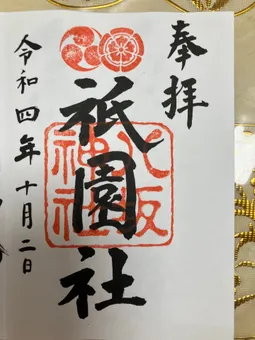 奉拝
祇園社
八坂神社
令和四年十月二日